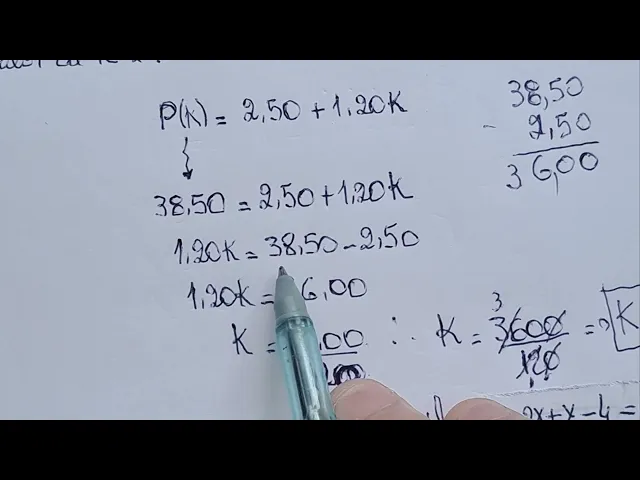 P(K) = 2,50 + 1,20K
38,50 = 2,50 + 1,20K
1,20K = 38,50 - 2,50
1,20K = 6,00
K = ,00
∴ K = 3600/120 = K
3
38,50
- 2,50
36,00
2x + x - 4 =